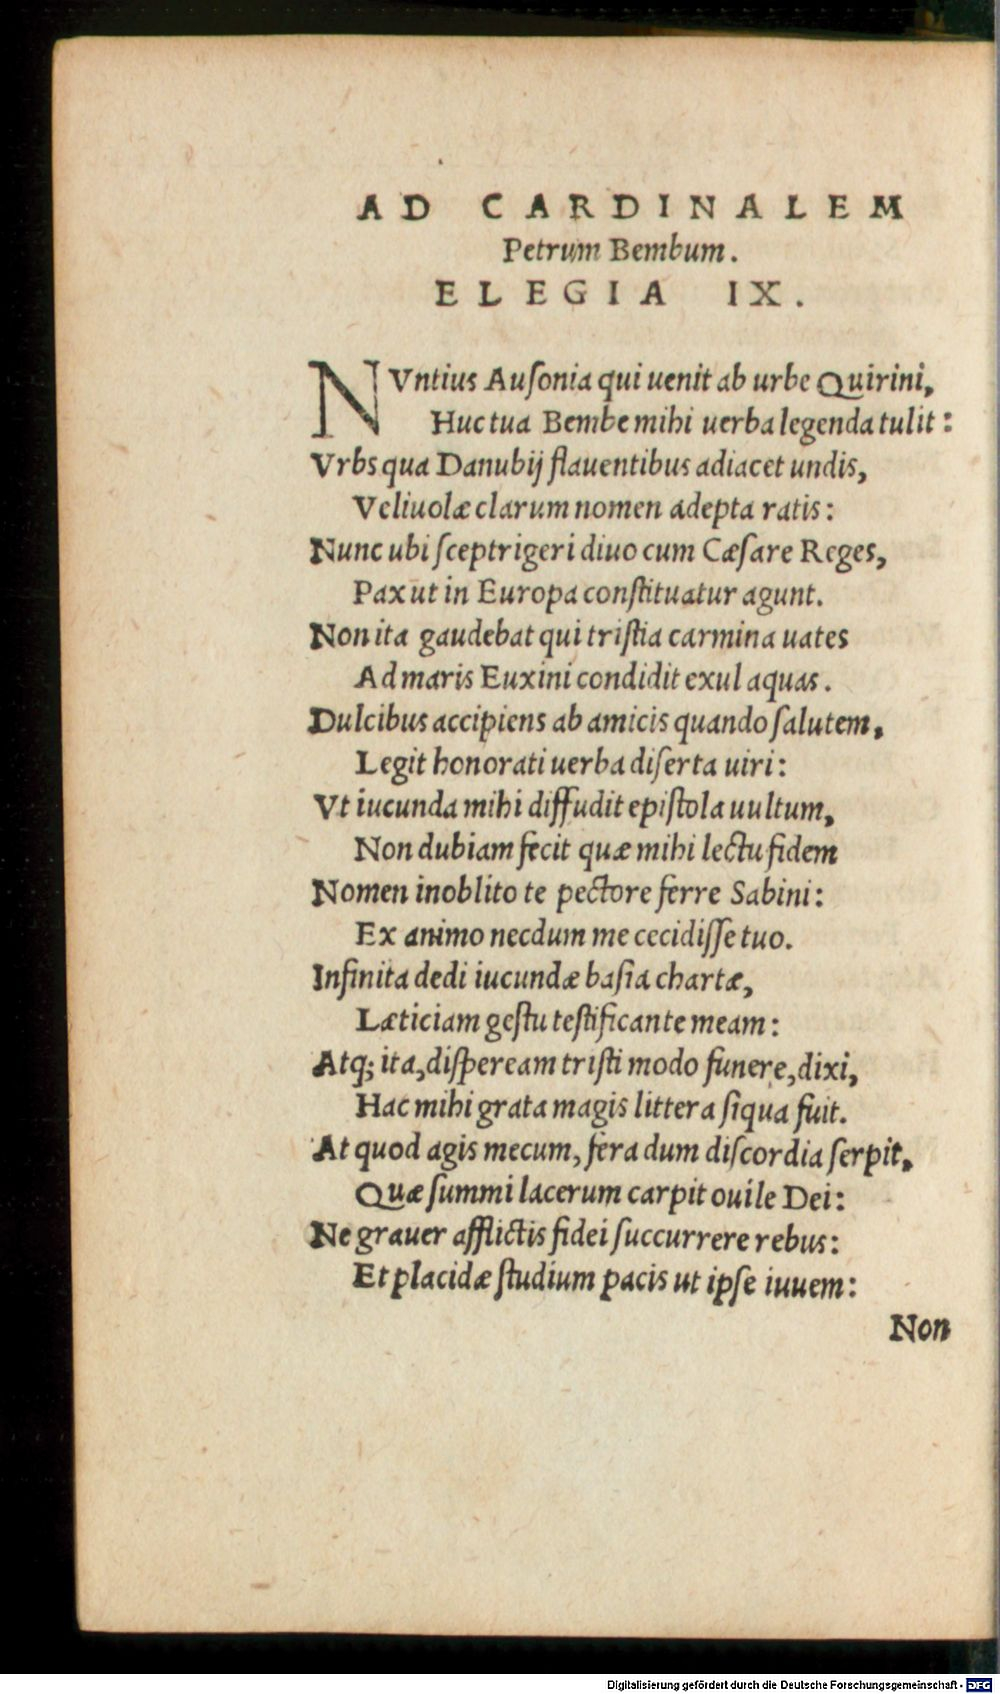 AD CARDINALEM
Petrum Bembum.
ELEGIA IX.
NVntius Auſonia qui uenit ab urbe Quirini,
Huc tua Bembe mihi uerba legenda tulit:
Vrbs qua Danubij flauentibus adiacet undis,
Veliuolæ clarum nomen adepta ratis:
Nunc ubi ſceptrigeri diuo cum Cæſare Reges,
Pax ut in Europa conſtituatur agunt.
Non ita gaudebat qui triſtia carmina uates
Ad maris Euxini condidit exul aquas.
Dulcibus accipiens ab amicis quando ſalutem,
Legit honorati uerba diſerta uiri:
Vt iucunda mihi diffudit epiſtola uultum,
Non dubiam fecit quæ mihi lectu fidem
Nomen inoblito te pectore ferre Sabini:
Ex animo necdum me cecidiſſe tuo.
Infinita dedi iucundæ baſia chartæ,
Læticiam geſtu teſtificante meam:
Atq; ita, diſpeream triſti modo funere, dixi,
Hac mihi grata magis littera ſiqua fuit.
At quod agis mecum, fera dum diſcordia ſerpit,
Quæ ſummi lacerum carpit ouile Dei:
Ne grauer afflictis fidei ſuccurrere rebus:
Et placidæ ſtudium pacis ut ipſe iuuem:
Non
Digitalisierung gefördert durch die Deutsche Forschungsgemeinschaft - DFG